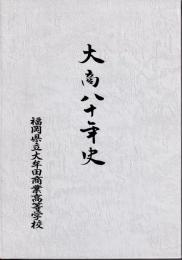 大商八十年史
福岡県立大牟田商業高等学校